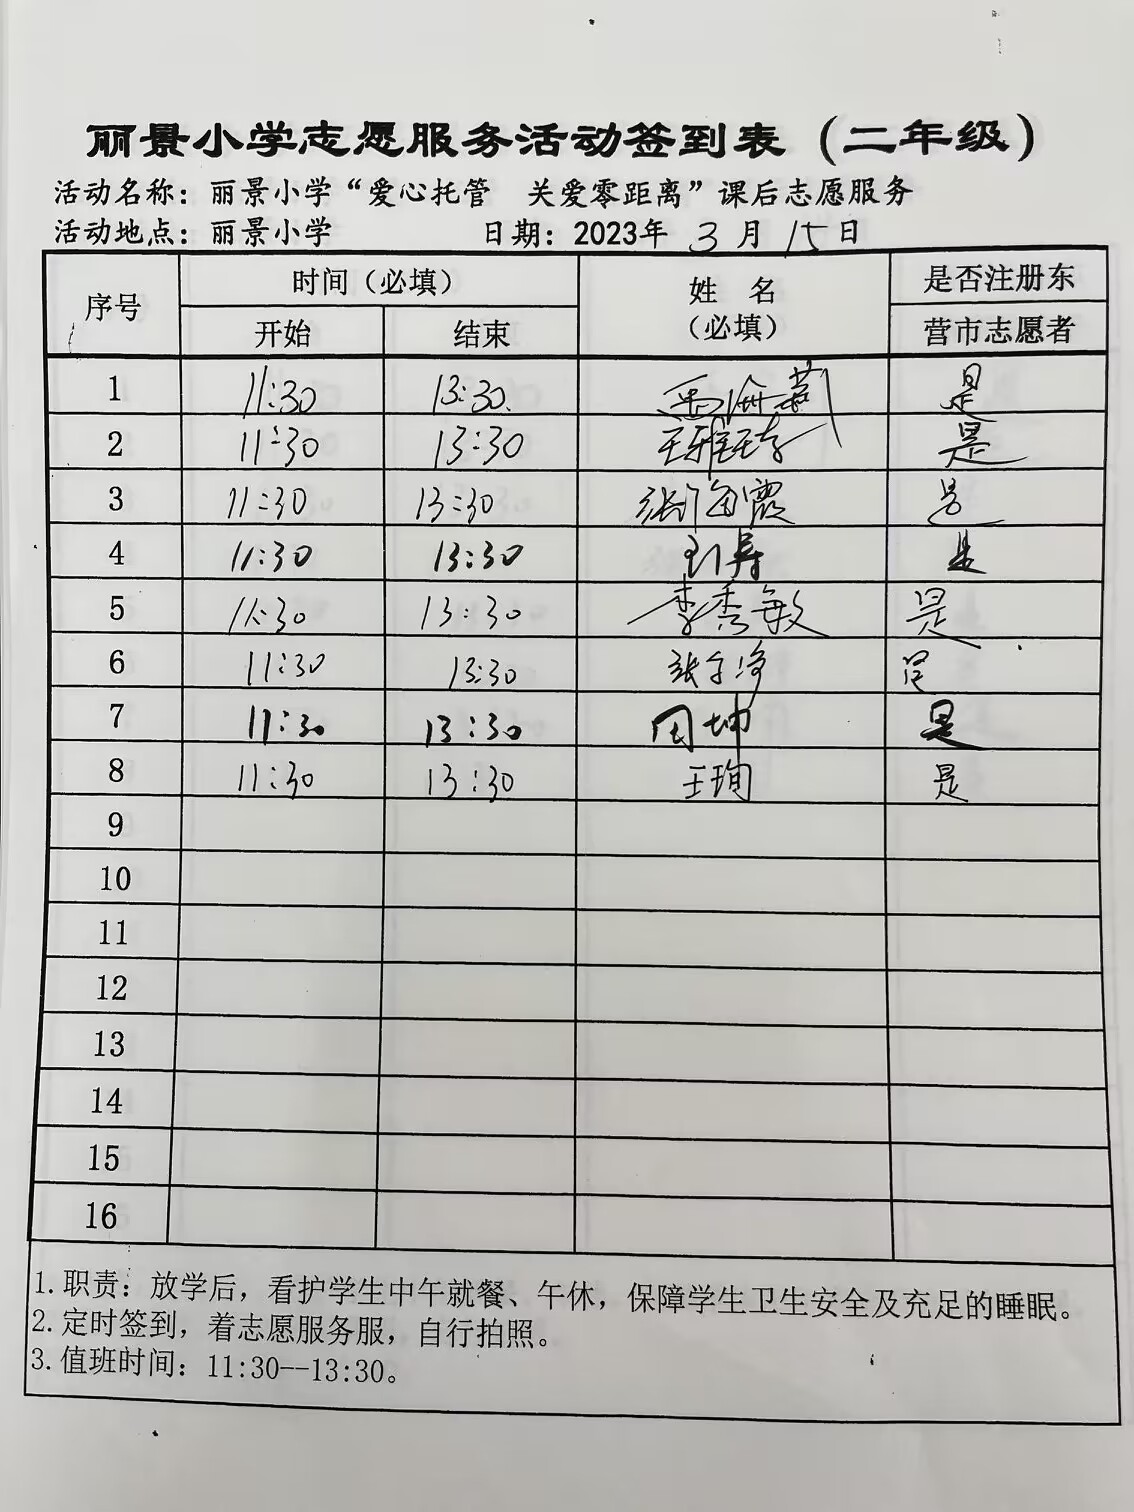 丽景小学志愿服务活动签到表（二年级）
活动名称：丽景小学“爱心托管　关爱零距离”课后志愿服务
活动地点：丽景小学 日期：2023年 3 月 15 日
序号 时间（必填） 姓 名（必填） 是否注册东营市志愿者
开始 结束
1 11:30 13:30 是
2 11:30 13:30 王雅 是
3 11:30 13:30 张海霞 是
4 11:30 13:30 是
5 11:30 13:30 李秀敏 是
6 11:30 13:30 张 是
7 11:30 13:30 周坤 是
8 11:30 13:30 王珣 是
9
10
11
12
13
14
15
16
1.职责：放学后，看护学生中午就餐、午休，保障学生卫生安全及充足的睡眠。
2.定时签到，着志愿服务服，自行拍照。
3.值班时间：11:30--13:30。